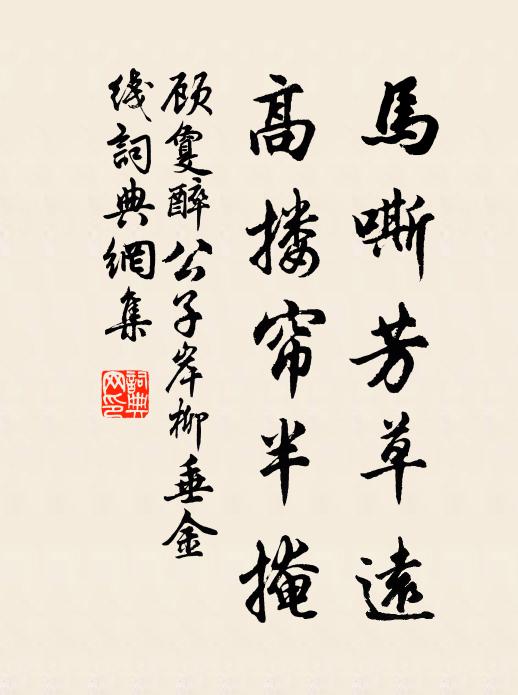 馬嘶芳草遠
高搂帘半掩
顾夐醉公子岸柳垂金
线詞典網集
詞典
网印